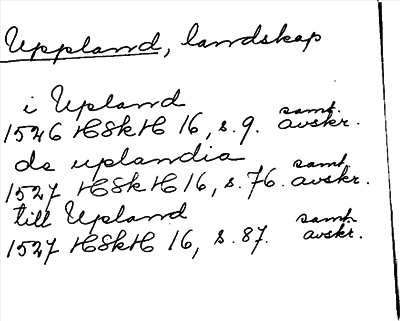 Uppland, landskap
i Upland
1526 HSkH 16, s. 9. samt. avskr.
de uplandia
1527 HSkH 16, s. 76. samt. avskr.
till Upland
1527 HSkH 16, s. 87. samt. avskr.